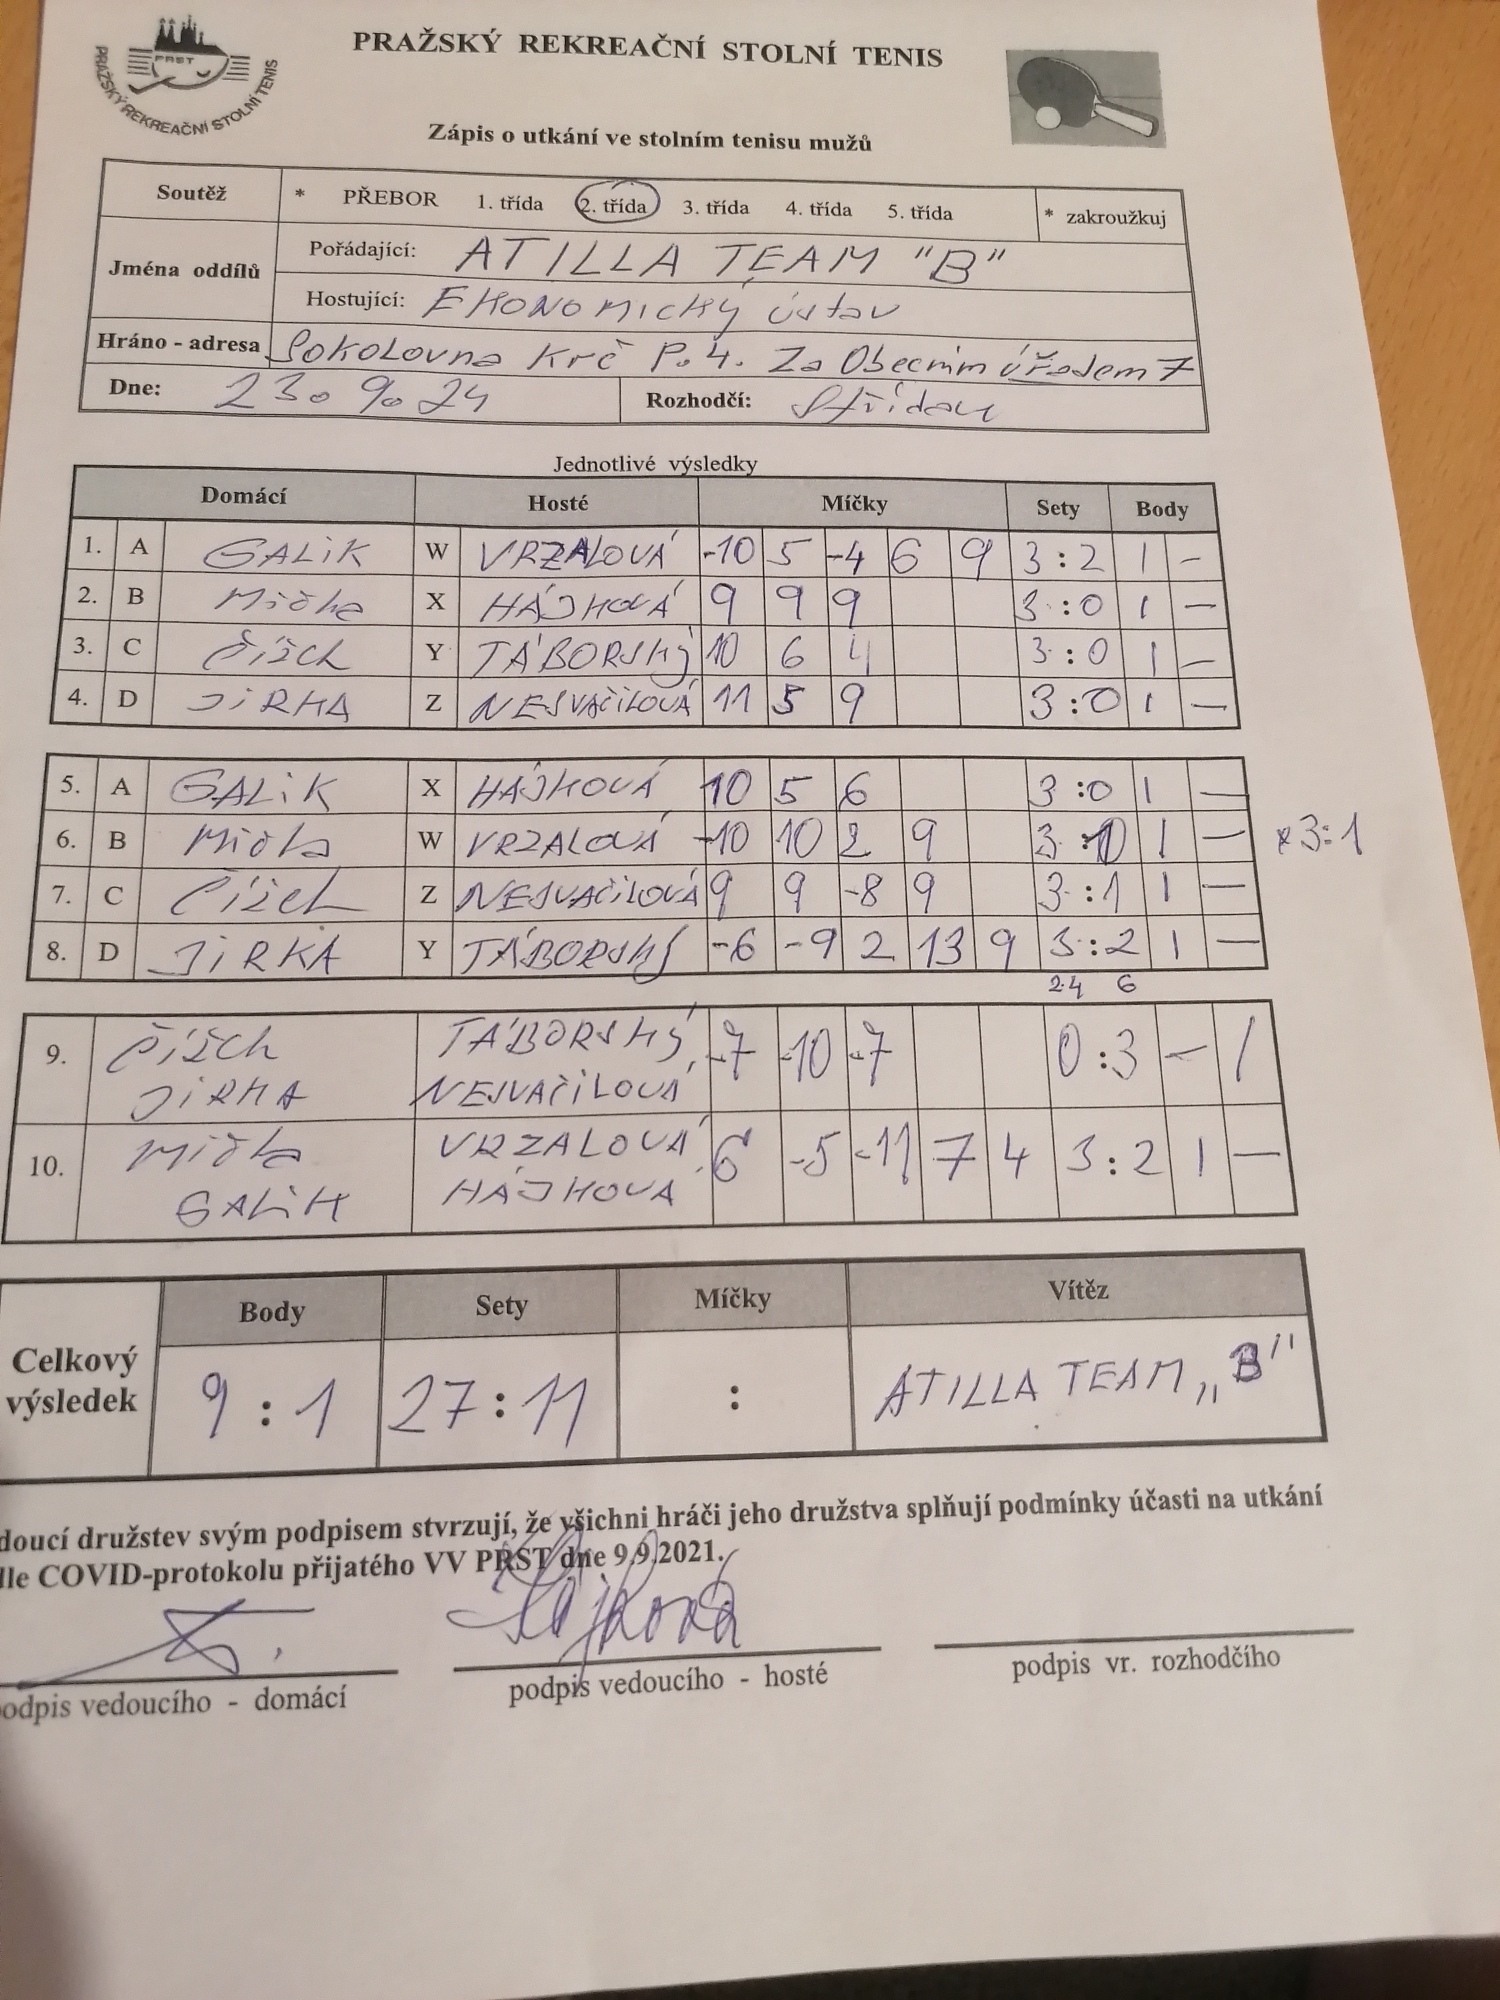 PRAŽSKÝ REKREAČNÍ STOLNÍ TENIS
PRST
PRAŽSKÝ REKREAČNÍ STOLNÍ TENIS
Zápis o utkání ve stolním tenisu mužů
Soutěž * PŘEBOR 1. třída 2. třída 3. třída 4. třída 5. třída * zakroužkuj
Jména oddílů
Pořádající: ATILLA TEAM "B"
Hostující: EKONOMICKÝ ústav
Hráno - adresa SOKOLOVNA Krč P.4. Za Obecním úřadem 7
Dne: 23. 9. 24 Rozhodčí:
Jednotlivé výsledky
Domácí Hosté Míčky Sety Body
1. A GALIK W VRZALOVÁ -10 5 -4 6 9 3 : 2 1 -
2. B X HÁJKOVÁ 9 9 9 3 : 0 1 -
3. C Čížek Y TÁBORSKÝ 10 6 4 3 : 0 1 -
4. D JIRKA Z NESVAČILOVÁ 11 5 9 3 : 0 1 -
5. A GALIK X HÁJKOVÁ 10 5 6 3 : 0 1 -
6. B W VRZALOVÁ -10 10 2 9 3 : 1 - * 3:1
7. C Čížek Z NESVAČILOVÁ 9 9 -8 9 3 : 1 1 -
8. D JIRKA Y TÁBORSKÝ -6 -9 2 13 9 3 : 2 1 -
24 6
9. Čížek TÁBORSKÝ -7 -10 -7 0 : 3 - 1
JIRKA NESVAČILOVÁ
10. VRZALOVÁ 6 -5 -11 7 4 3 : 2 1 -
GALIK HÁJKOVÁ
Body Sety Míčky Vítěz
Celkový výsledek 9 : 1 27 : 11 : ATILLA TEAM „B"
doucí družstev svým podpisem stvrzují, že všichni hráči jeho družstva splňují podmínky účasti na utkání
dle COVID-protokolu přijatého VV PRST dne 9.9.2021.
Hájková
podpis vedoucího - domácí podpis vedoucího - hosté podpis vr. rozhodčího